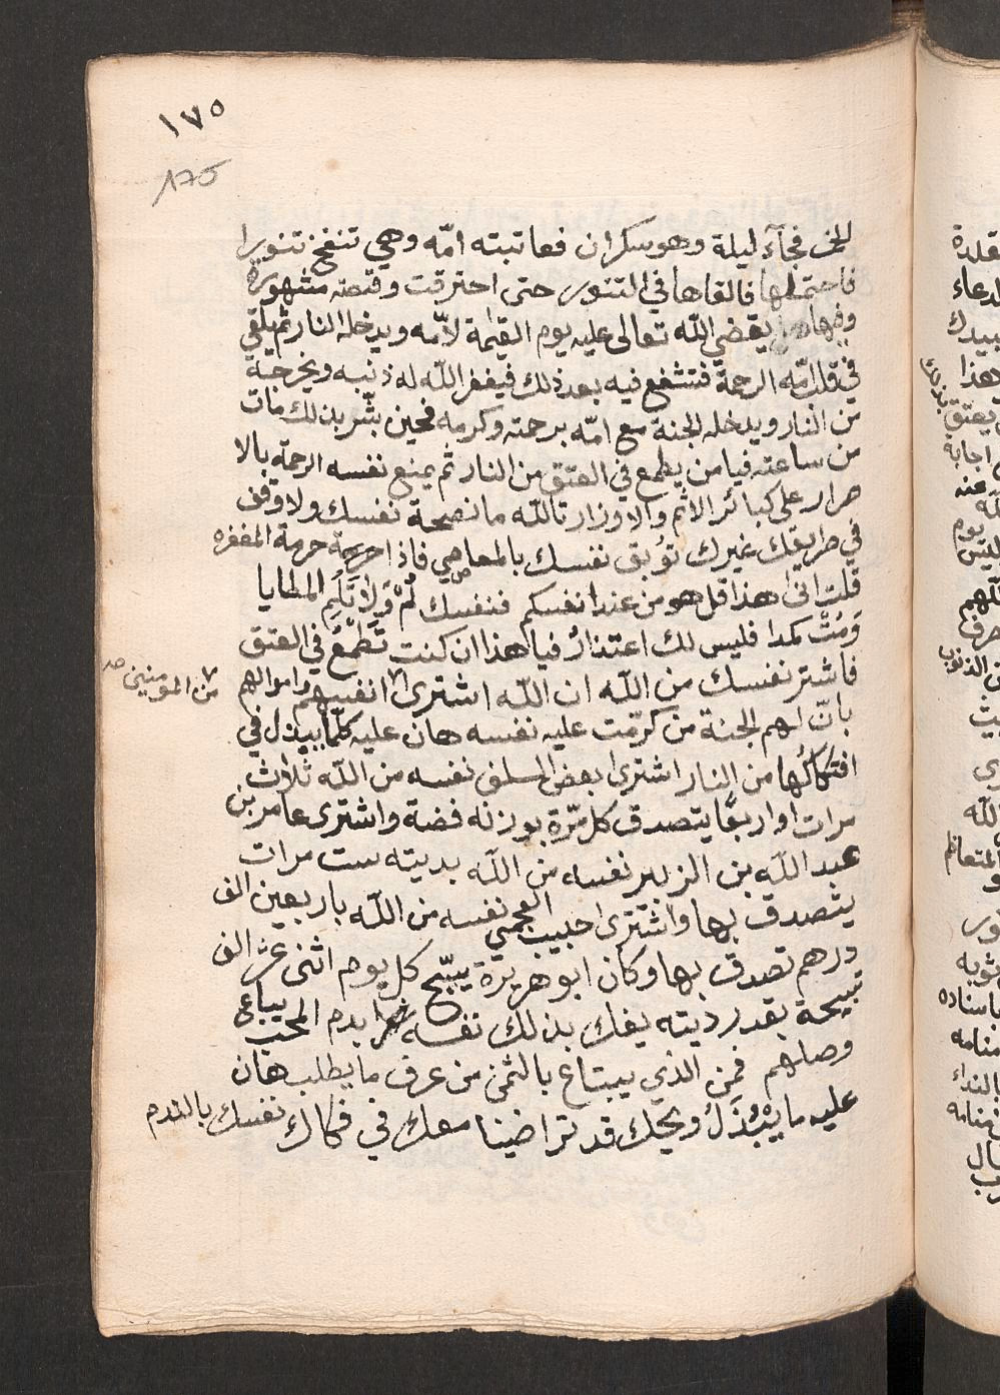 ١٧٥
175
الخمر فجآء ليلة وهو سكران فعاتبته امّه وهي تنفخ تنورا
فاحتملها فالقاها في التنور حتى احترقت وقصّته مشهورة
وفيها يقضي اللّه تعالى عليه يوم القيٰمة لامّه ويدخله النار ثم يلقي
في قلب امّه الرحمة فتشفع فيه بعد ذلك فيغفر اللّه له ذنبه ويخرجه
من النار ويدخله الجنة مع امّه برحمته وكرمه فحين بشّر بذلك مات
من ساعته فيا من يطمع في العتق من النار ثم يمنع نفسه الرحمة بالا
صرار على كبائر الاثم والاوزار تاللّه ما نصحة نفسك ولا وقف
في طريقك غيرك تُوبق نفسك بالمعاصي فاذا حرمة المغفره
قلت انىٰ هذا قل هو من عند انفسكم فنفسك لُمْ وَلاٰ تَلُمِ المطايا
وَمُتْ كمدا فليس لك اعتذارُ فيا هذا ان كنت تَطْمَعُ في العتق
فاشتر نفسك من اللّه ان اللّه اشترى انفسهم واموالهم
من المومنين صح
بانّ لهم الجنة من كرّمت عليه نفسه هان عليه كلّما يبذل في
افتكاكُها من النار اشترى بعض السلف نفسه من اللّه ثلاث
مرات او اربعًا يتصدق كل مّرة بوزنه فضة واشترى عامر بن
عبد اللّه بن الزبير نفسه من اللّه بديته ست مرات
يتصدق بها واشترى حبيب العجمي نفسه من اللّه باربعين الف
درهم تصدق بها وكان ابو هريرة يسّبح كل يوم اثنى عشر الف
تسبيحة بقدر ديته يفك بذلك نفسه بدم المحب يباع
وصلهم فمن الذي يبتاع بالثمن من عرف ما يطلب هان
عليه ما يُبْذَلُ ويحك قد تراضينا معك في فكاك نفسك بالندم